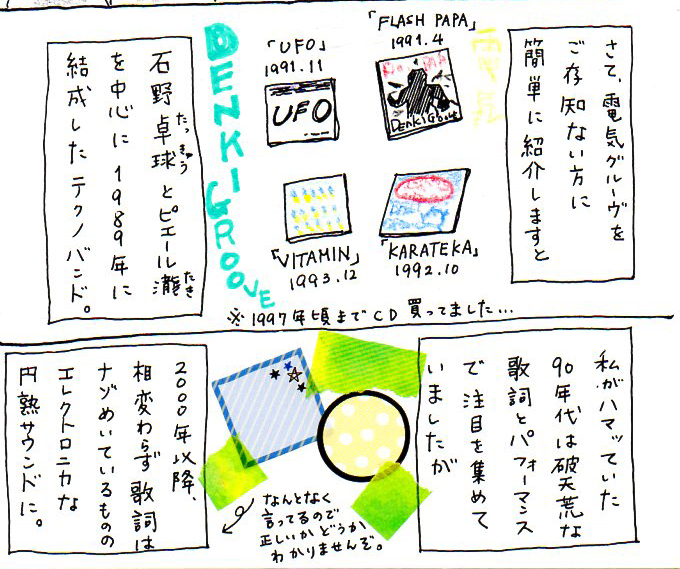 さて、電気グルーヴを
ご存知ない方に
簡単に紹介しますと
電気
「FLASH PAPA」
1991.4
DENKI Groove
「UFO」
1991.11
UFO
「KARATEKA」
1992.10
「VITAMIN」
1993.12
DENKI GROOVE
石野卓球とピエール瀧
たっきゅう
たき
を中心に1989年に
結成したテクノバンド。
※1997年頃までCD買ってました…
私がハマッていた
90年代は破天荒な
歌詞とパフォーマンス
で注目を集めて
いましたが
2000年以降、
相変わらず歌詞は
ナゾめいているものの
エレクトロニカな
円熟サウンドに。
なんとなく
言ってるので
正しいかどうか
わかりませんぞ。